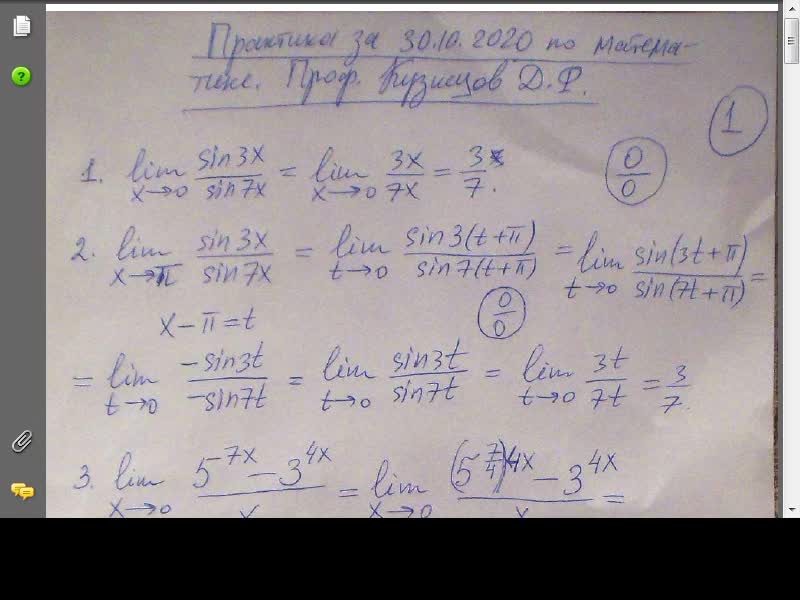 Практика за 30.10.2020 по матема-
тике. Проф. Кузнецов Д.Ф.
1
1. lim x→0 sin3x/sin7x = lim x→0 3x/7x = 3/7. 0/0
2. lim x→π sin3x/sin7x = lim t→0 sin3(t+π)/sin7(t+π) = lim t→0 sin(3t+π)/sin(7t+π) =
x-π=t 0/0
= lim t→0 -sin3t/-sin7t = lim t→0 sin3t/sin7t = lim t→0 3t/7t = 3/7.
3. lim x→0 (5^{-7x} - 3^{4x})/x = lim x→0 ((5^{-7/4})^{4x} - 3^{4x})/x =